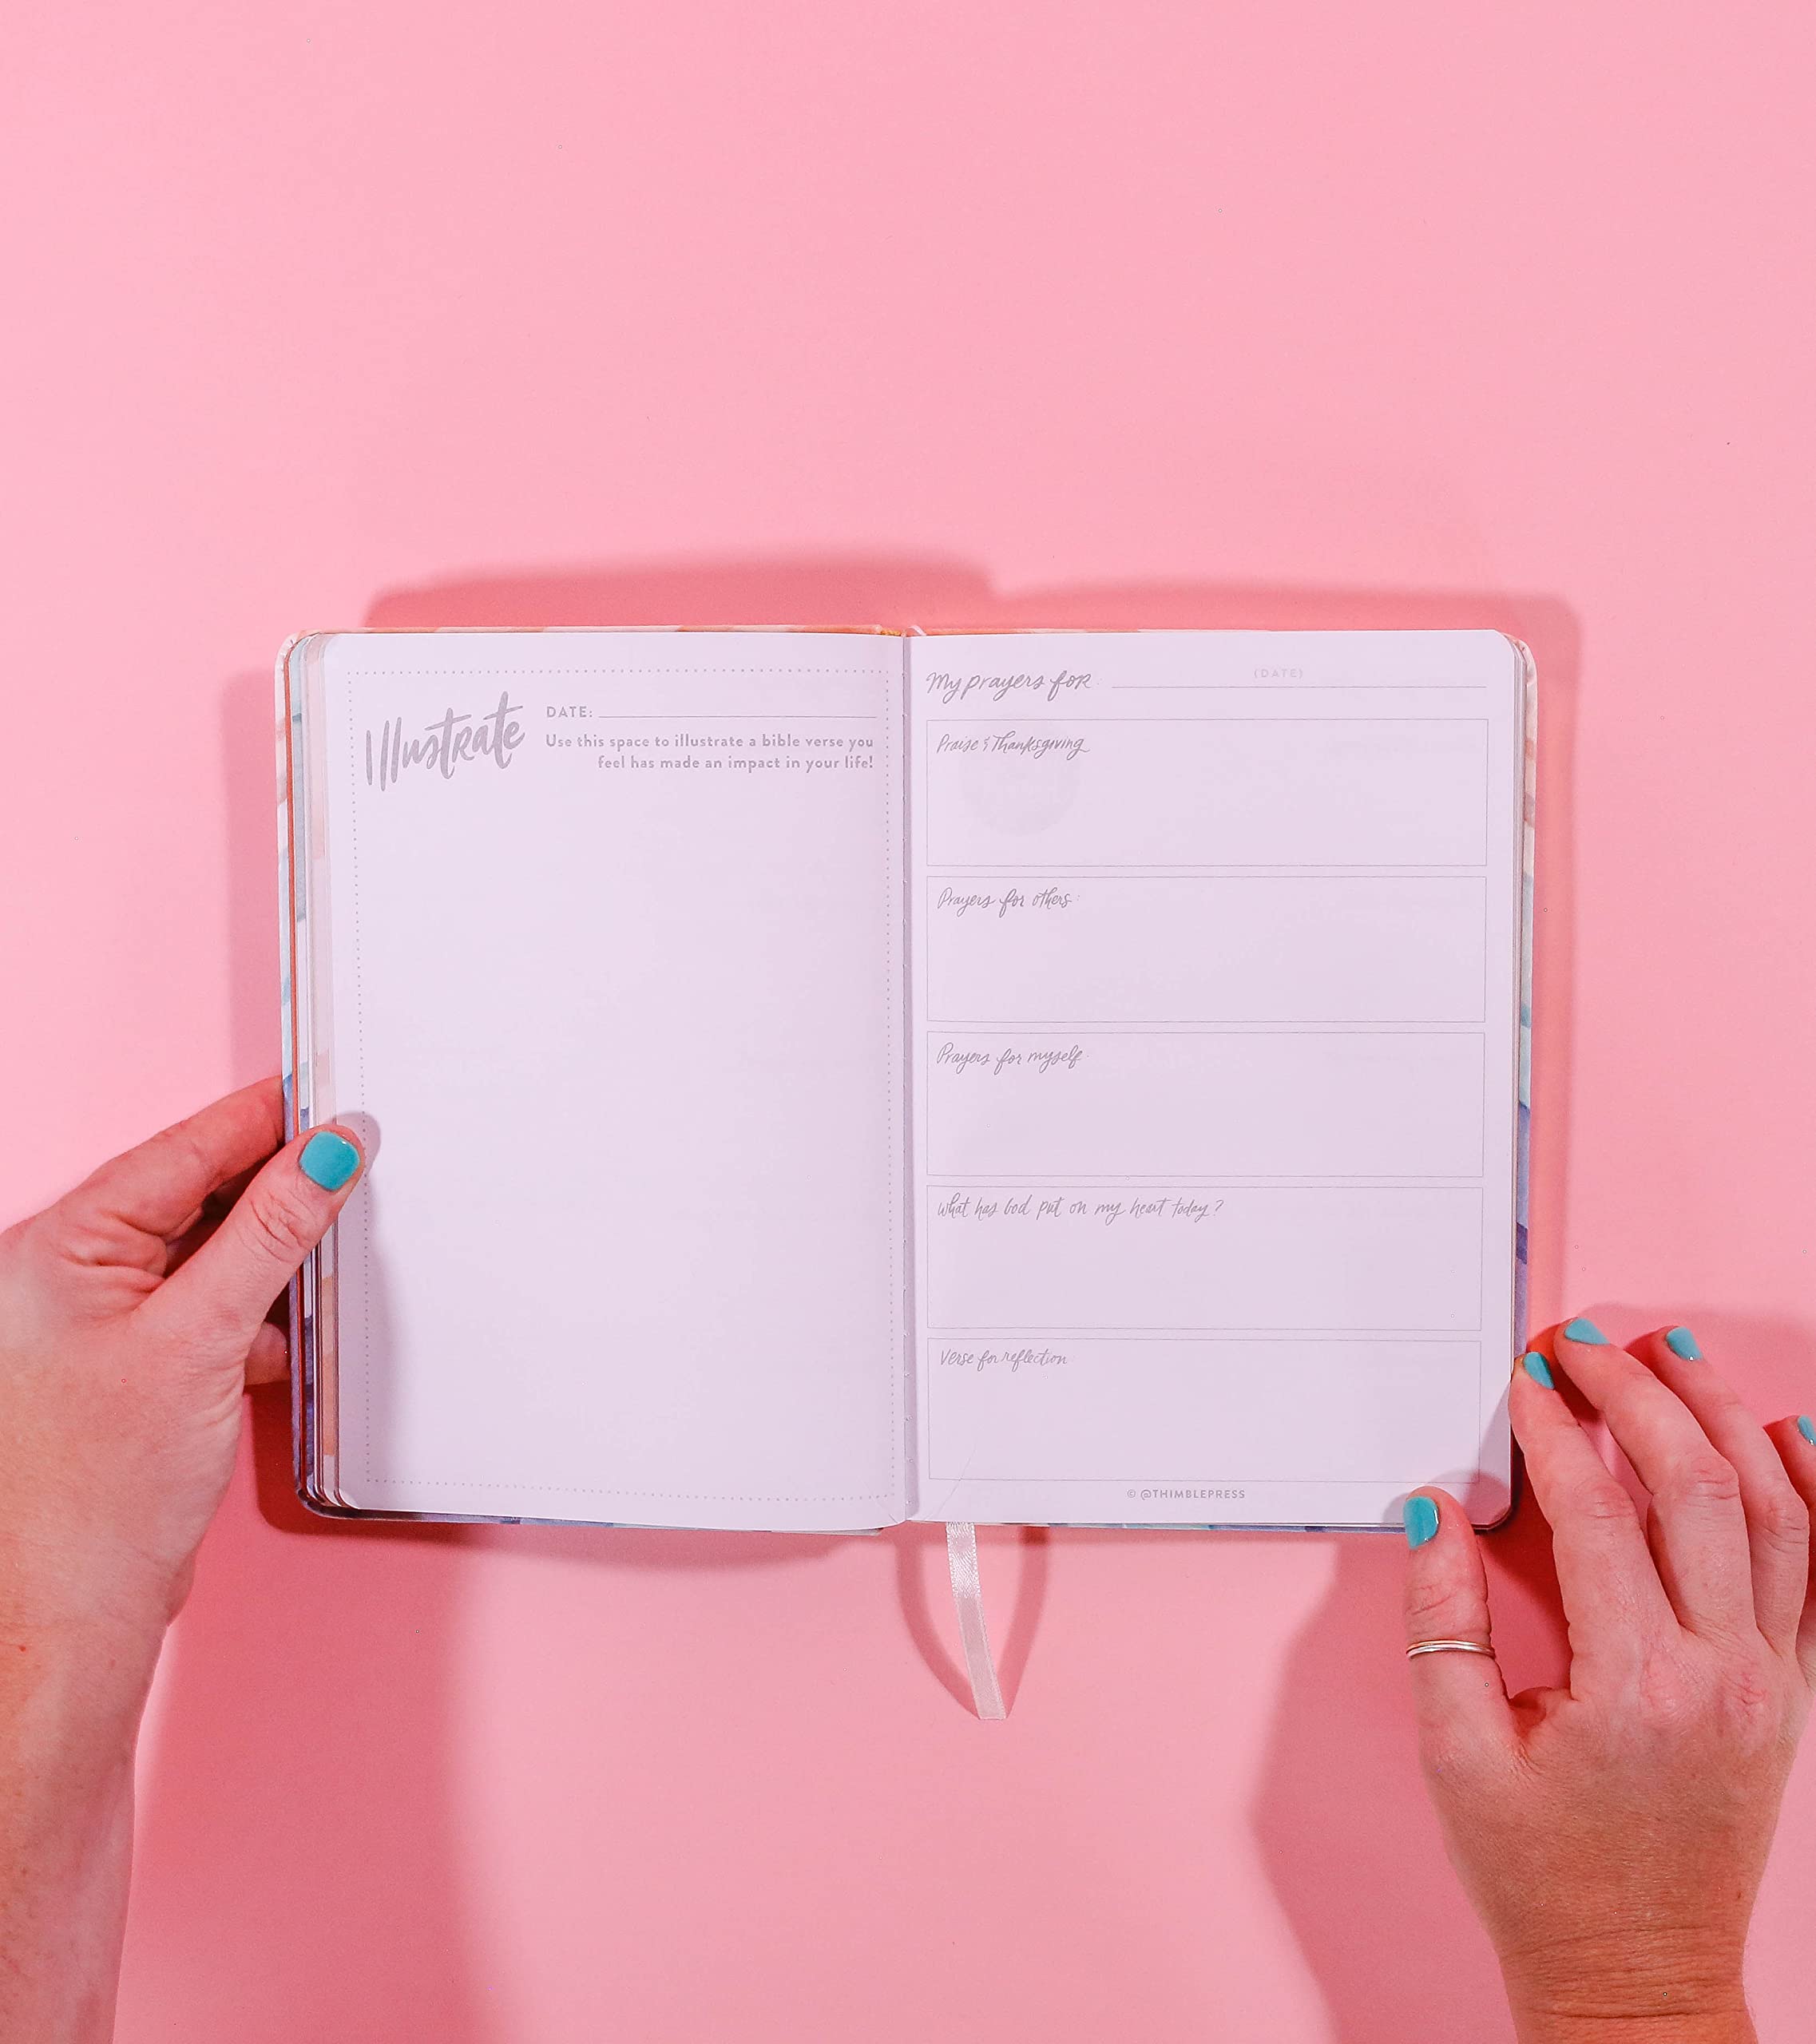 Illustrate
DATE:
Use this space to illustrate a bible verse you
feel has made an impact in your life!
My prayers for:
(DATE)
Praise & Thanksgiving
Prayers for others:
Prayers for myself:
What has God put on my heart today?
Verse for reflection
© @THIMBLEPRESS